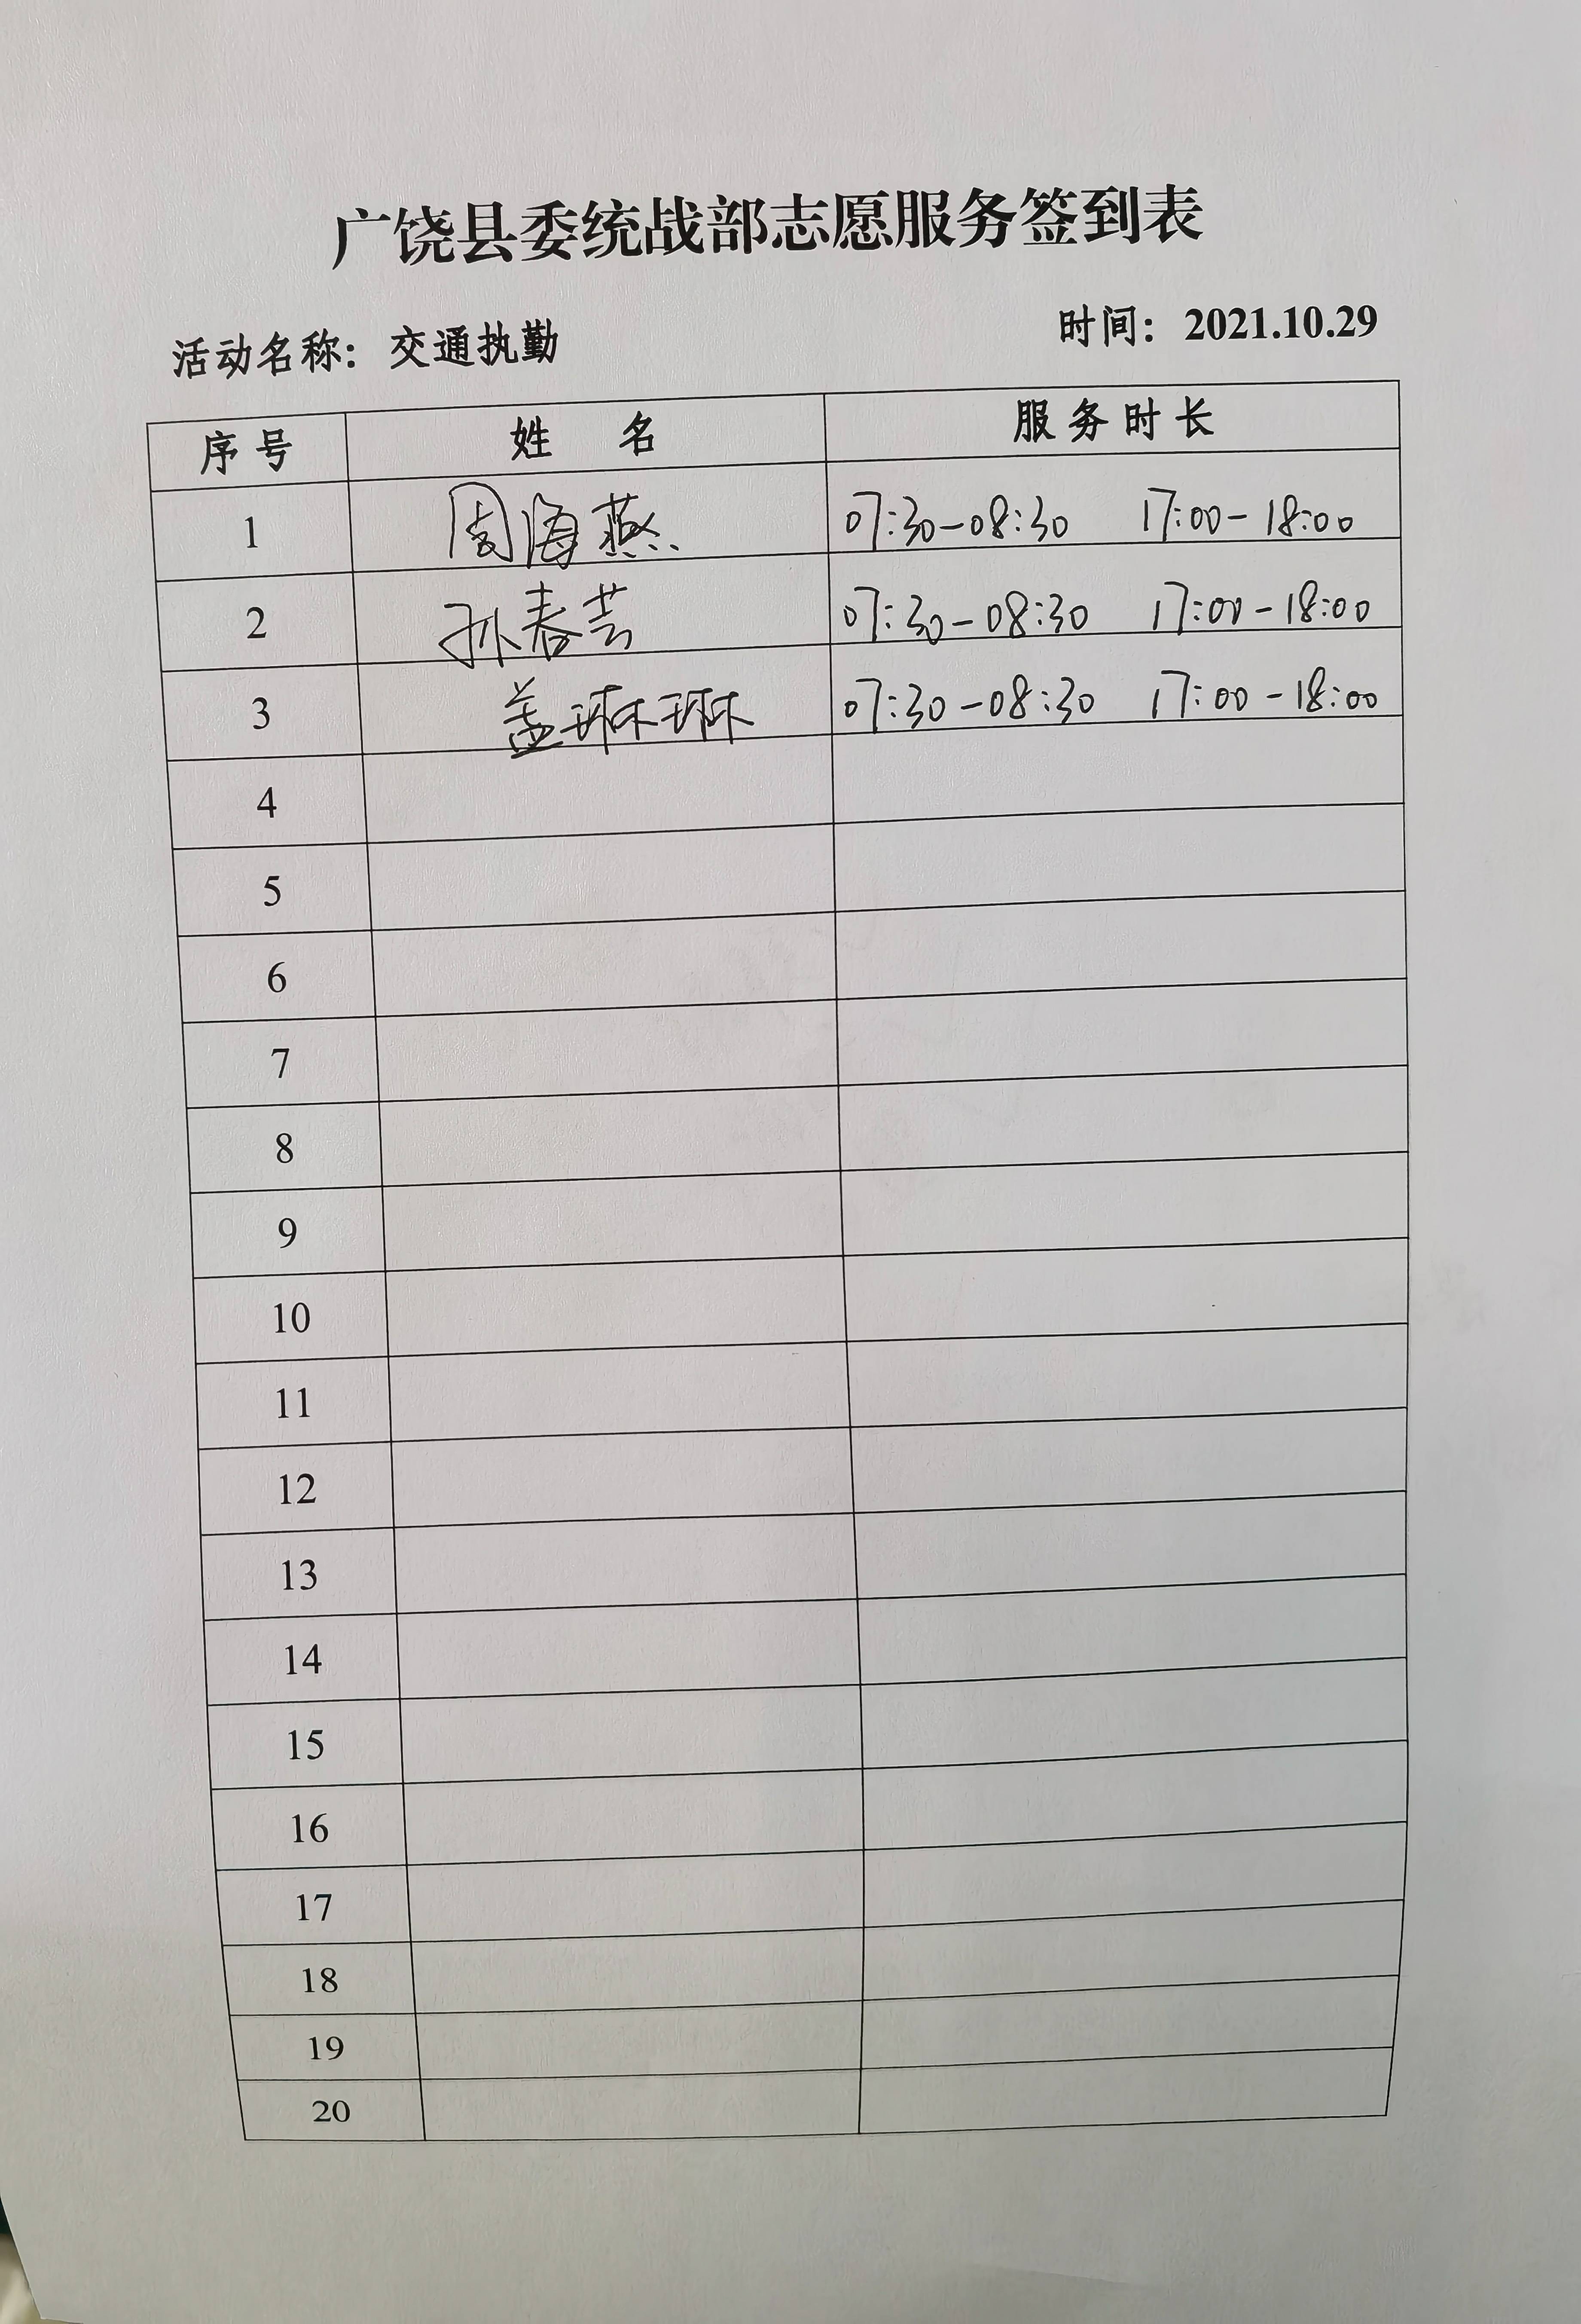 广饶县委统战部志愿服务签到表
活动名称：交通执勤 时间：2021.10.29
序号 姓 名 服务时长
1 周海燕 07:30-08:30 17:00-18:00
2 孙春芸 07:30-08:30 17:00-18:00
3 盖琳琳 07:30-08:30 17:00-18:00
4
5
6
7
8
9
10
11
12
13
14
15
16
17
18
19
20